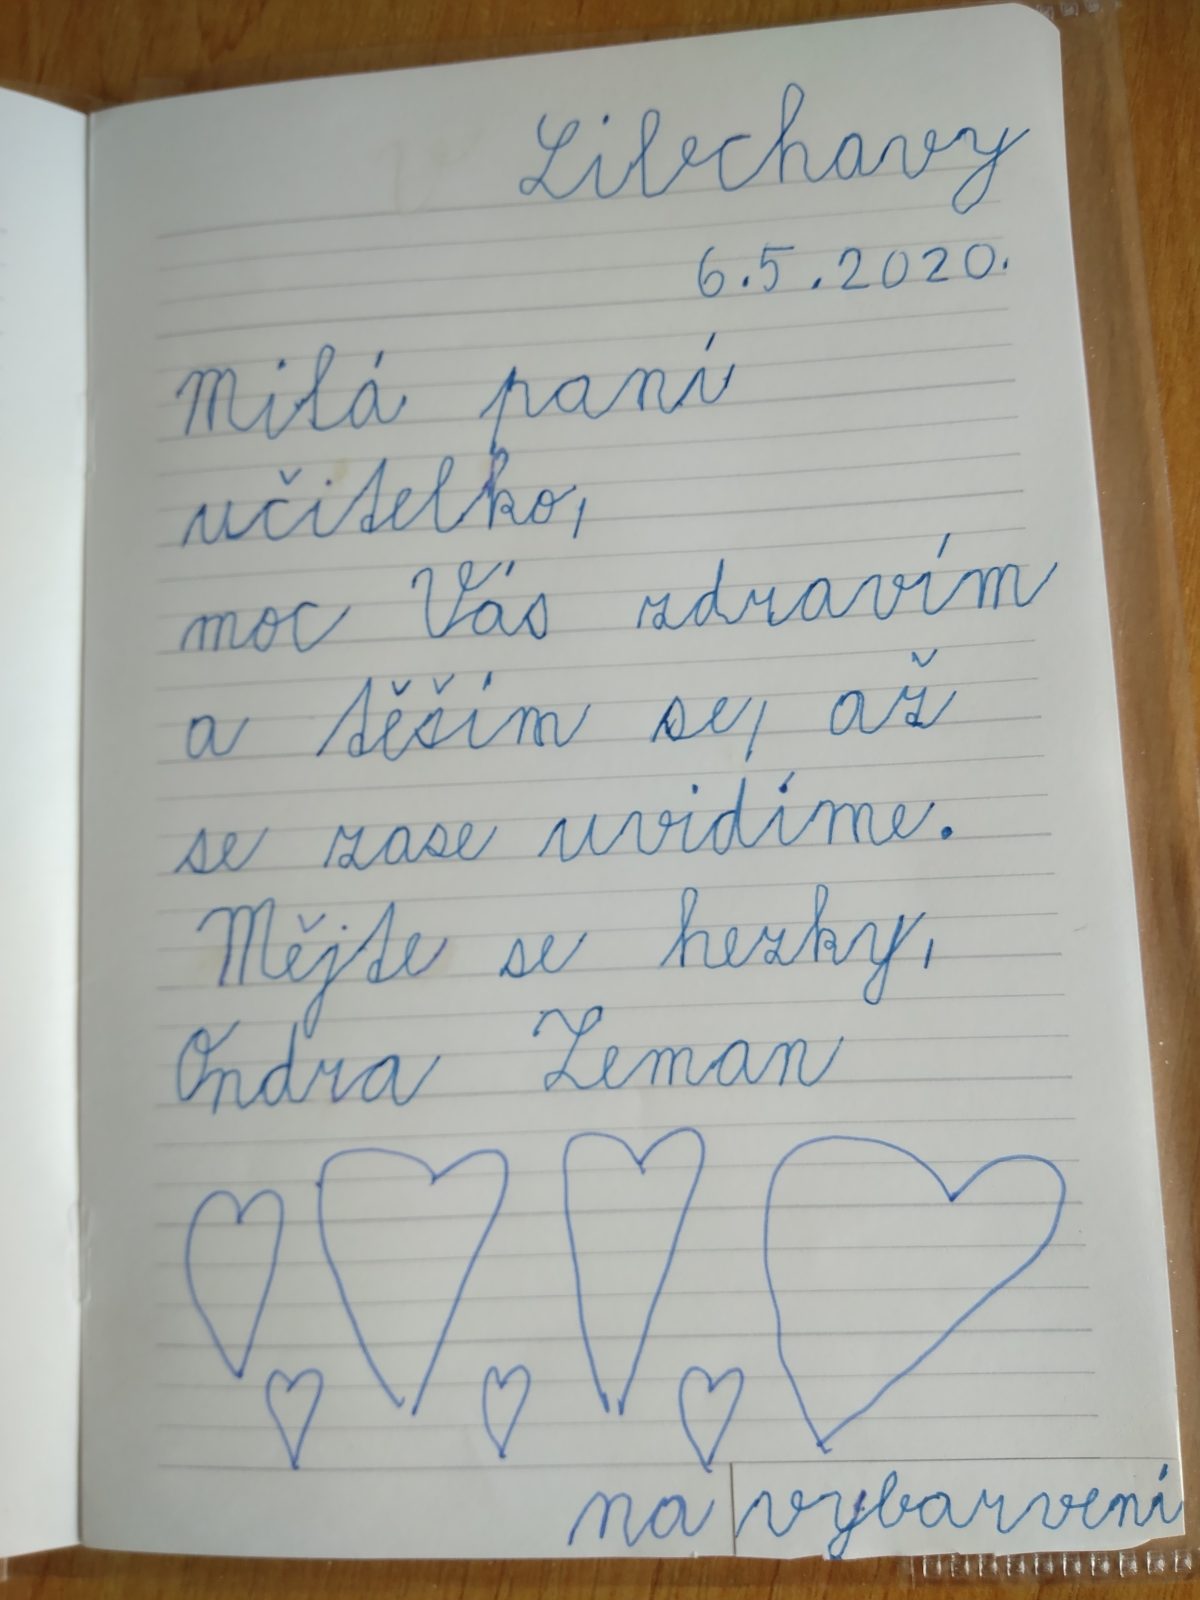 Libchavy
6.5.2020.
Milá paní
učitelko,
moc Vás zdravím
a těším se, až
se zase uvidíme.
Mějte se hezky,
Ondra Zeman
na vybarvení